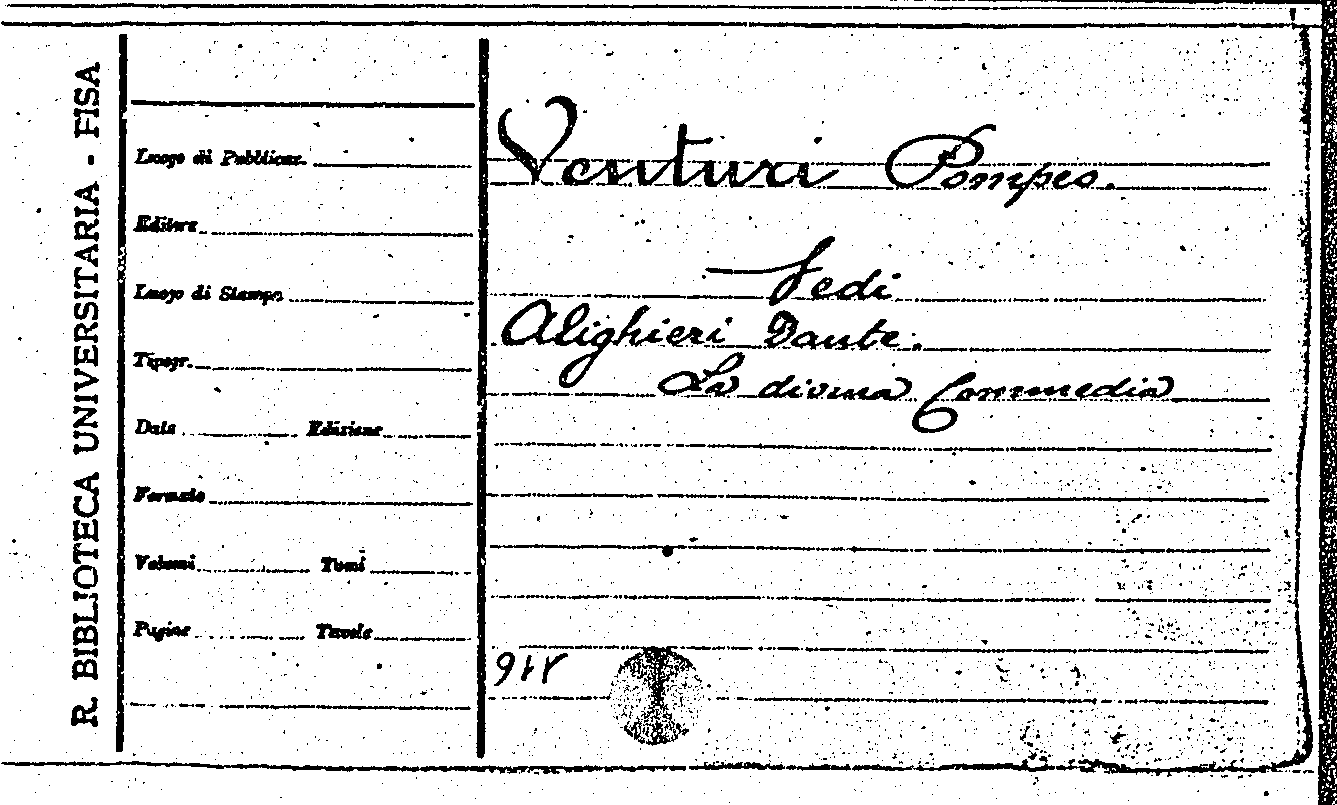 R. BIBLIOTECA UNIVERSITARIA - PISA
Luogo di Pubblicaz.
Editore
Luogo di Stampa
Tipogr.
Data Edizione
Formato
Volumi Tomi
Pagine Tavole
Venturi Pompeo.
Vedi
Alighieri Dante.
La divina Commedia